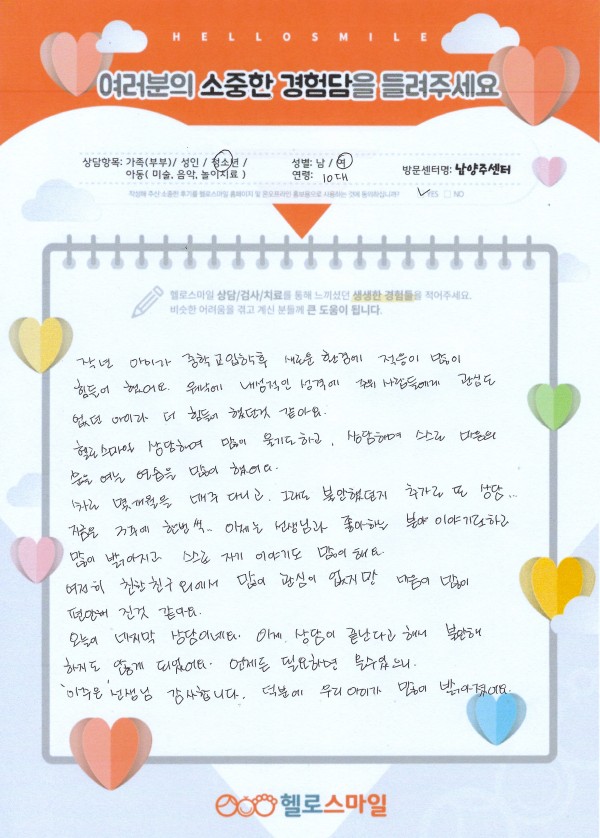 HELLOSMILE
여러분의 소중한 경험담을 들려주세요
상담항목: 가족(부부)/ 성인 / 청소년 / 성별: 남 / 여 방문센터명: 남양주센터
아동( 미술, 음악, 놀이치료 ) 연령: 10대
작성해 주신 소중한 후기를 헬로스마일 홈페이지 및 온오프라인 홍보용으로 사용하는 것에 동의하십니까? YES NO
헬로스마일 상담/검사/치료를 통해 느끼셨던 생생한 경험들을 적어주세요.
비슷한 어려움을 겪고 계신 분들께 큰 도움이 됩니다.
작년 아이가 중학교입학후 새로운 환경에 적응이 많이
힘들어 했어요. 워낙에 내성적인 성격에 주위 사람들에게 관심도
없던 아이라 더 힘들어 했던것 같아요.
헬로스마일 상담하며 많이 울기도하고, 상담하며 스스로 마음의
문을 여는 연습을 많이 했어요.
1차로 몇개월을 매주 다니고, 그래도 불안했던지 추가로 또 상담..
지금은 격주에 한번씩.. 이제는 선생님과 좋아하는 분야 이야기도하고
많이 밝아지고 스스로 자기 이야기도 많이 해요.
여전히 친한친구 외에서 많이 관심이 없지만 마음이 많이
편안해 진것 같아요.
오늘이 마지막 상담이네요. 이제 상담이 끝난다고 해도 불안해
하지도 않게 되었어요. 언제든 필요하면 올수있으니.
'이주은' 선생님 감사합니다. 덕분에 우리아이가 많이 밝아졌어요.
헬로스마일